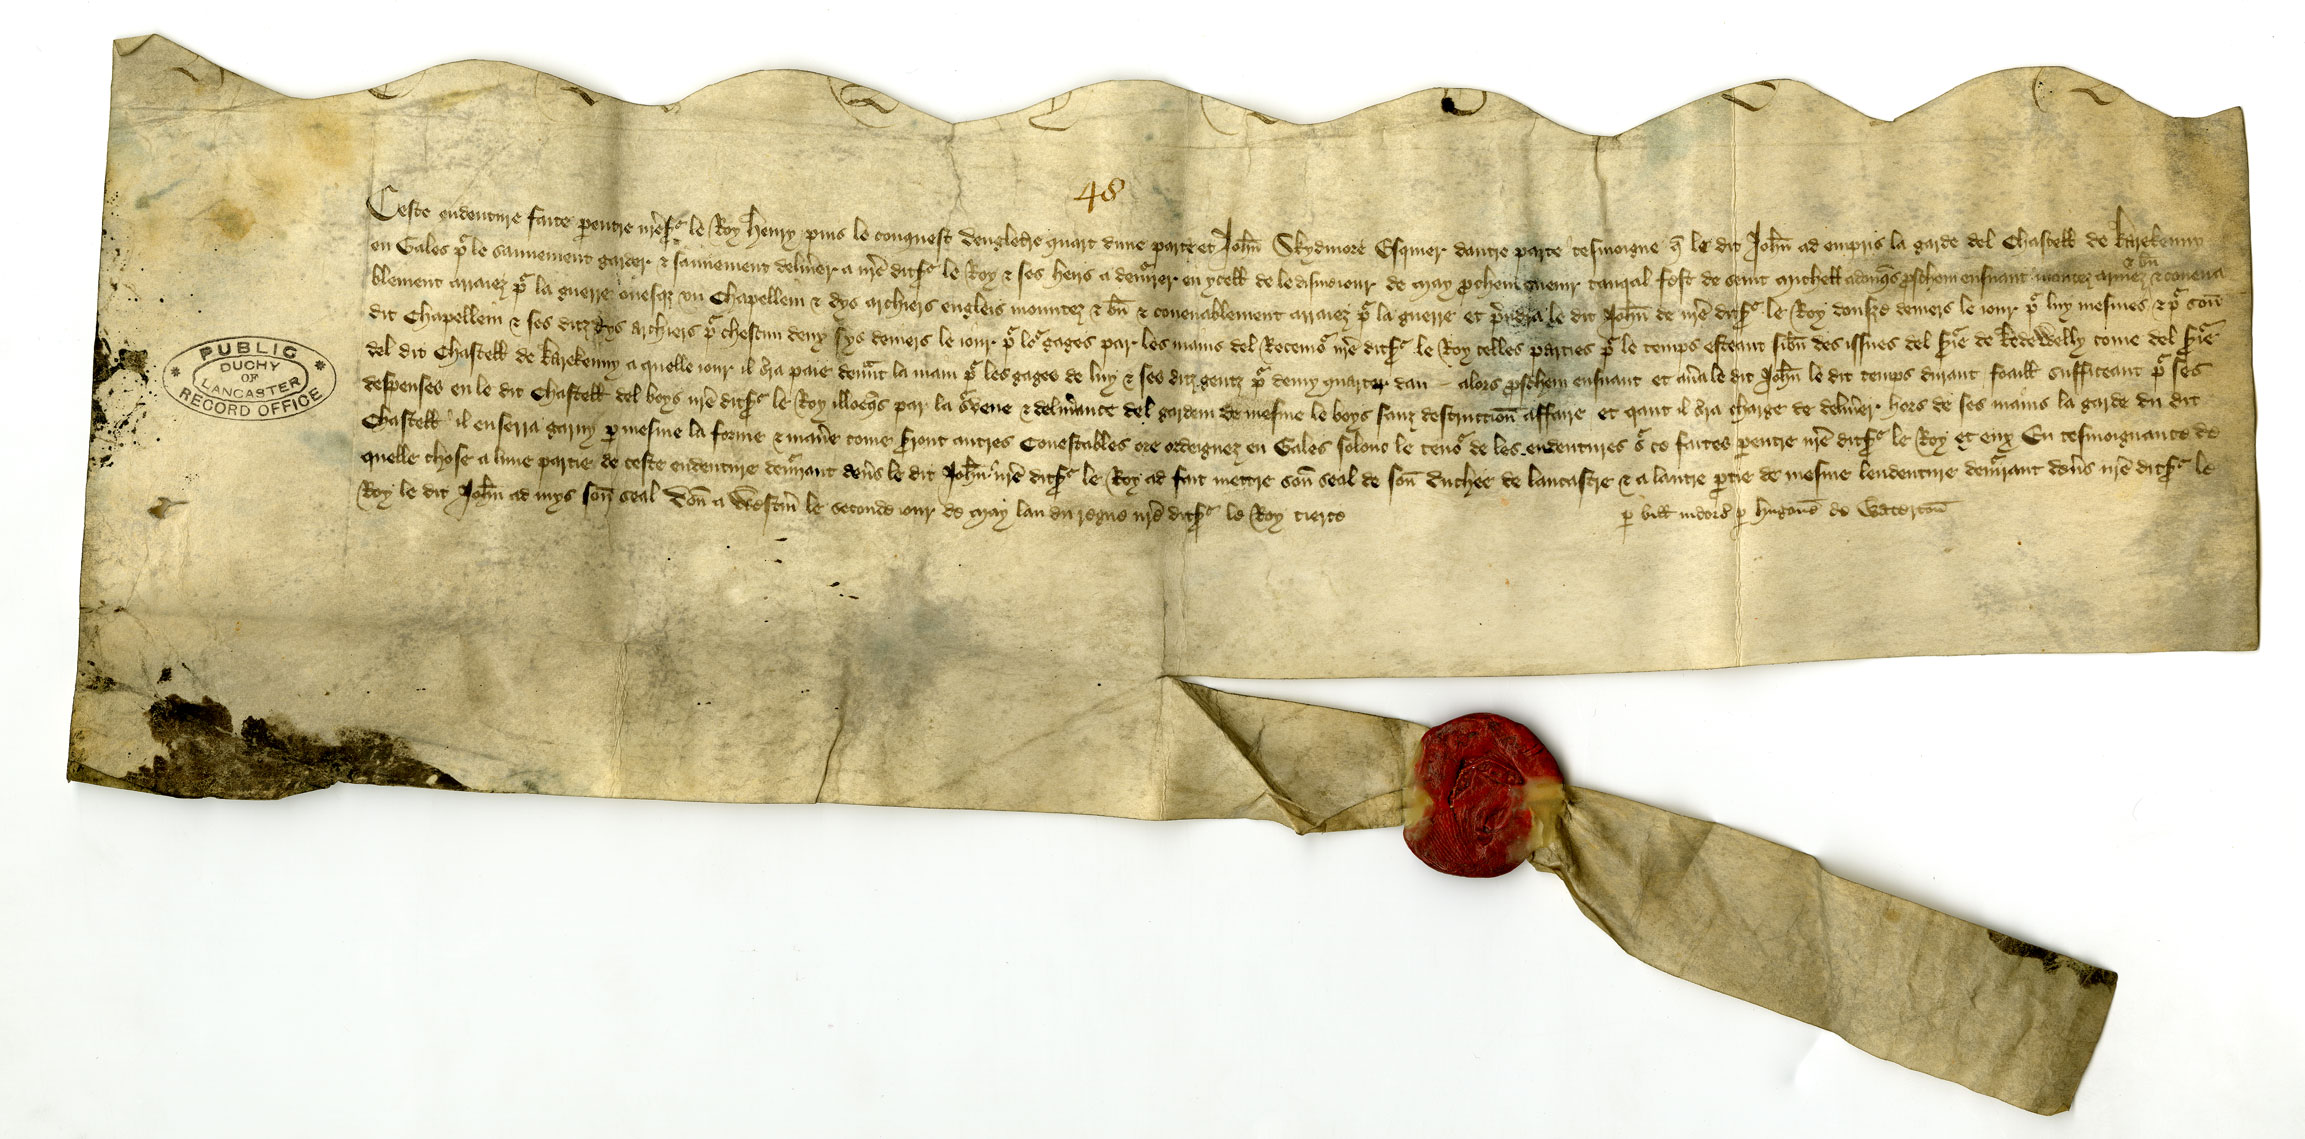 48
Ceste endenture faite pentre nre sr le Roy Henry puis le conquest dengletre quart dune parte et John Skydmore Esquier dautre parte tesmoigne q le dit John ad empris la garde del Chastell de Karekenny
en Gales pr le sauvement garder & sauvement deliverer a nre dit sr le Roy & ses heirs a demurer en ycell de le disme iour de May prochein avenir tanqal fest de seint Michell adonqs pschein ensuant mountez armez & bn & covena
blement arraiez pr la guerre ovesqz un Chapellein & dys archiers engleis mountez & bn & covenablement arraiez pr la guerre et prendra le dit John de nre dit sr le Roy douszd deniers le iour pr luy mesmes & pr son
dit Chapellein & ses ditz dys archiers pr chescun deux sys deniers le iour pr lor gages par les mains del Receivor nre dit sr le Roy celles parties pr le temps esteant sibn des issues del srie de Kedewelly come del srie
del dit Chastell de Karekenny a quelle iour il sra paie devant la main pr les gages de luy & ses ditz gentz pr demy quarter dan – alors pschein ensuant et avra le dit John le dit temps durant foaill sufficeant pr ses
despenses en le dit Chastell del boys nre dit sr le Roy illoeqs par la survene & deliverance del gardein de mesme le boys sanz destruction affaire et qant il sra charge de deliverer hors de ses mains la garde du dit
Chastell il en serra garny p mesme la forme & manere come sront autres Conestables ore ordeignez en Gales solonc le tenor de les endentures sr ce faites pentre nre dit sr le Roy et eux En tesmoignance de
quelle chose a lune partie de ceste endenture demurant devs le dit John nre dit sr le Roy ad fait mettre son seal de son Duchee de Lancastre & a lautre ptie de mesme lendenture demurant devs nre dit sr le
Roy le dit John ad mys son seal Don a Westm le seconde iour de May lan du regne nre dit sr le Roy tierce
p bill indors p Hugone de Waterton
PUBLIC
DUCHY
OF
LANCASTER
RECORD OFFICE